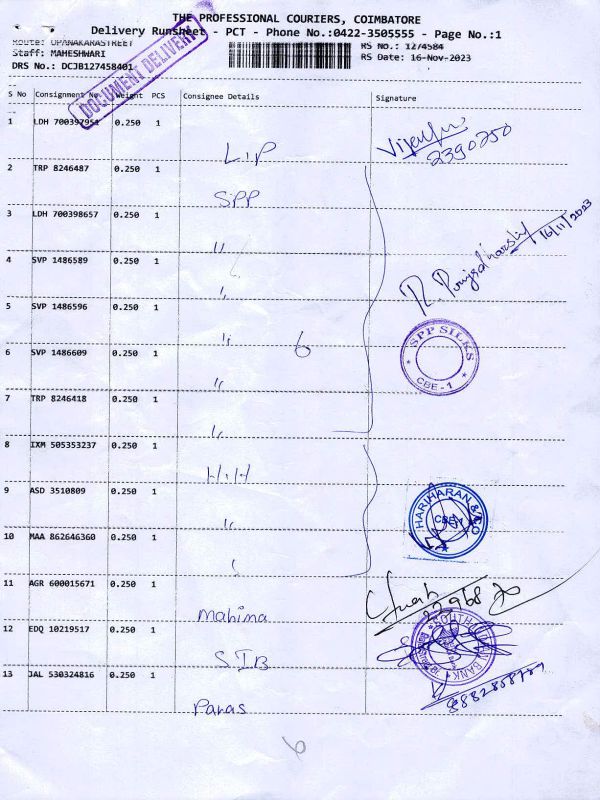 THE PROFESSIONAL COURIERS, COIMBATORE
Delivery Runsheet - PCT - Phone No.:0422-3505555 - Page No.:1
Route: OPANAKARASTREET
RS No.: 1274584
Staff: MAHESHWARI
RS Date: 16-Nov-2023
DRS No.: DCJB127458401
DOCUMENT DELIVERY
S No Consignment No. Weight PCS Consignee Details Signature
1 LDH 700397951 0.250 1
L.I.P
2390250
2 TRP 8246487 0.250 1
SPP
3 LDH 700398657 0.250 1
"
16/11/2023
4 SVP 1486589 0.250 1
"
5 SVP 1486596 0.250 1
" 6
SPP SILKS
CBE - 1
6 SVP 1486609 0.250 1
"
7 TRP 8246418 0.250 1
"
8 IXM 505353237 0.250 1
H.H
9 ASD 3510809 0.250 1
"
HARIHARAN & CO
CBE-1
10 MAA 862646360 0.250 1
"
11 AGR 600015671 0.250 1
Mahima
12 EDQ 10219517 0.250 1
SIB
SOUTH INDIAN BANK
13 JAL 530324816 0.250 1
Paras
6